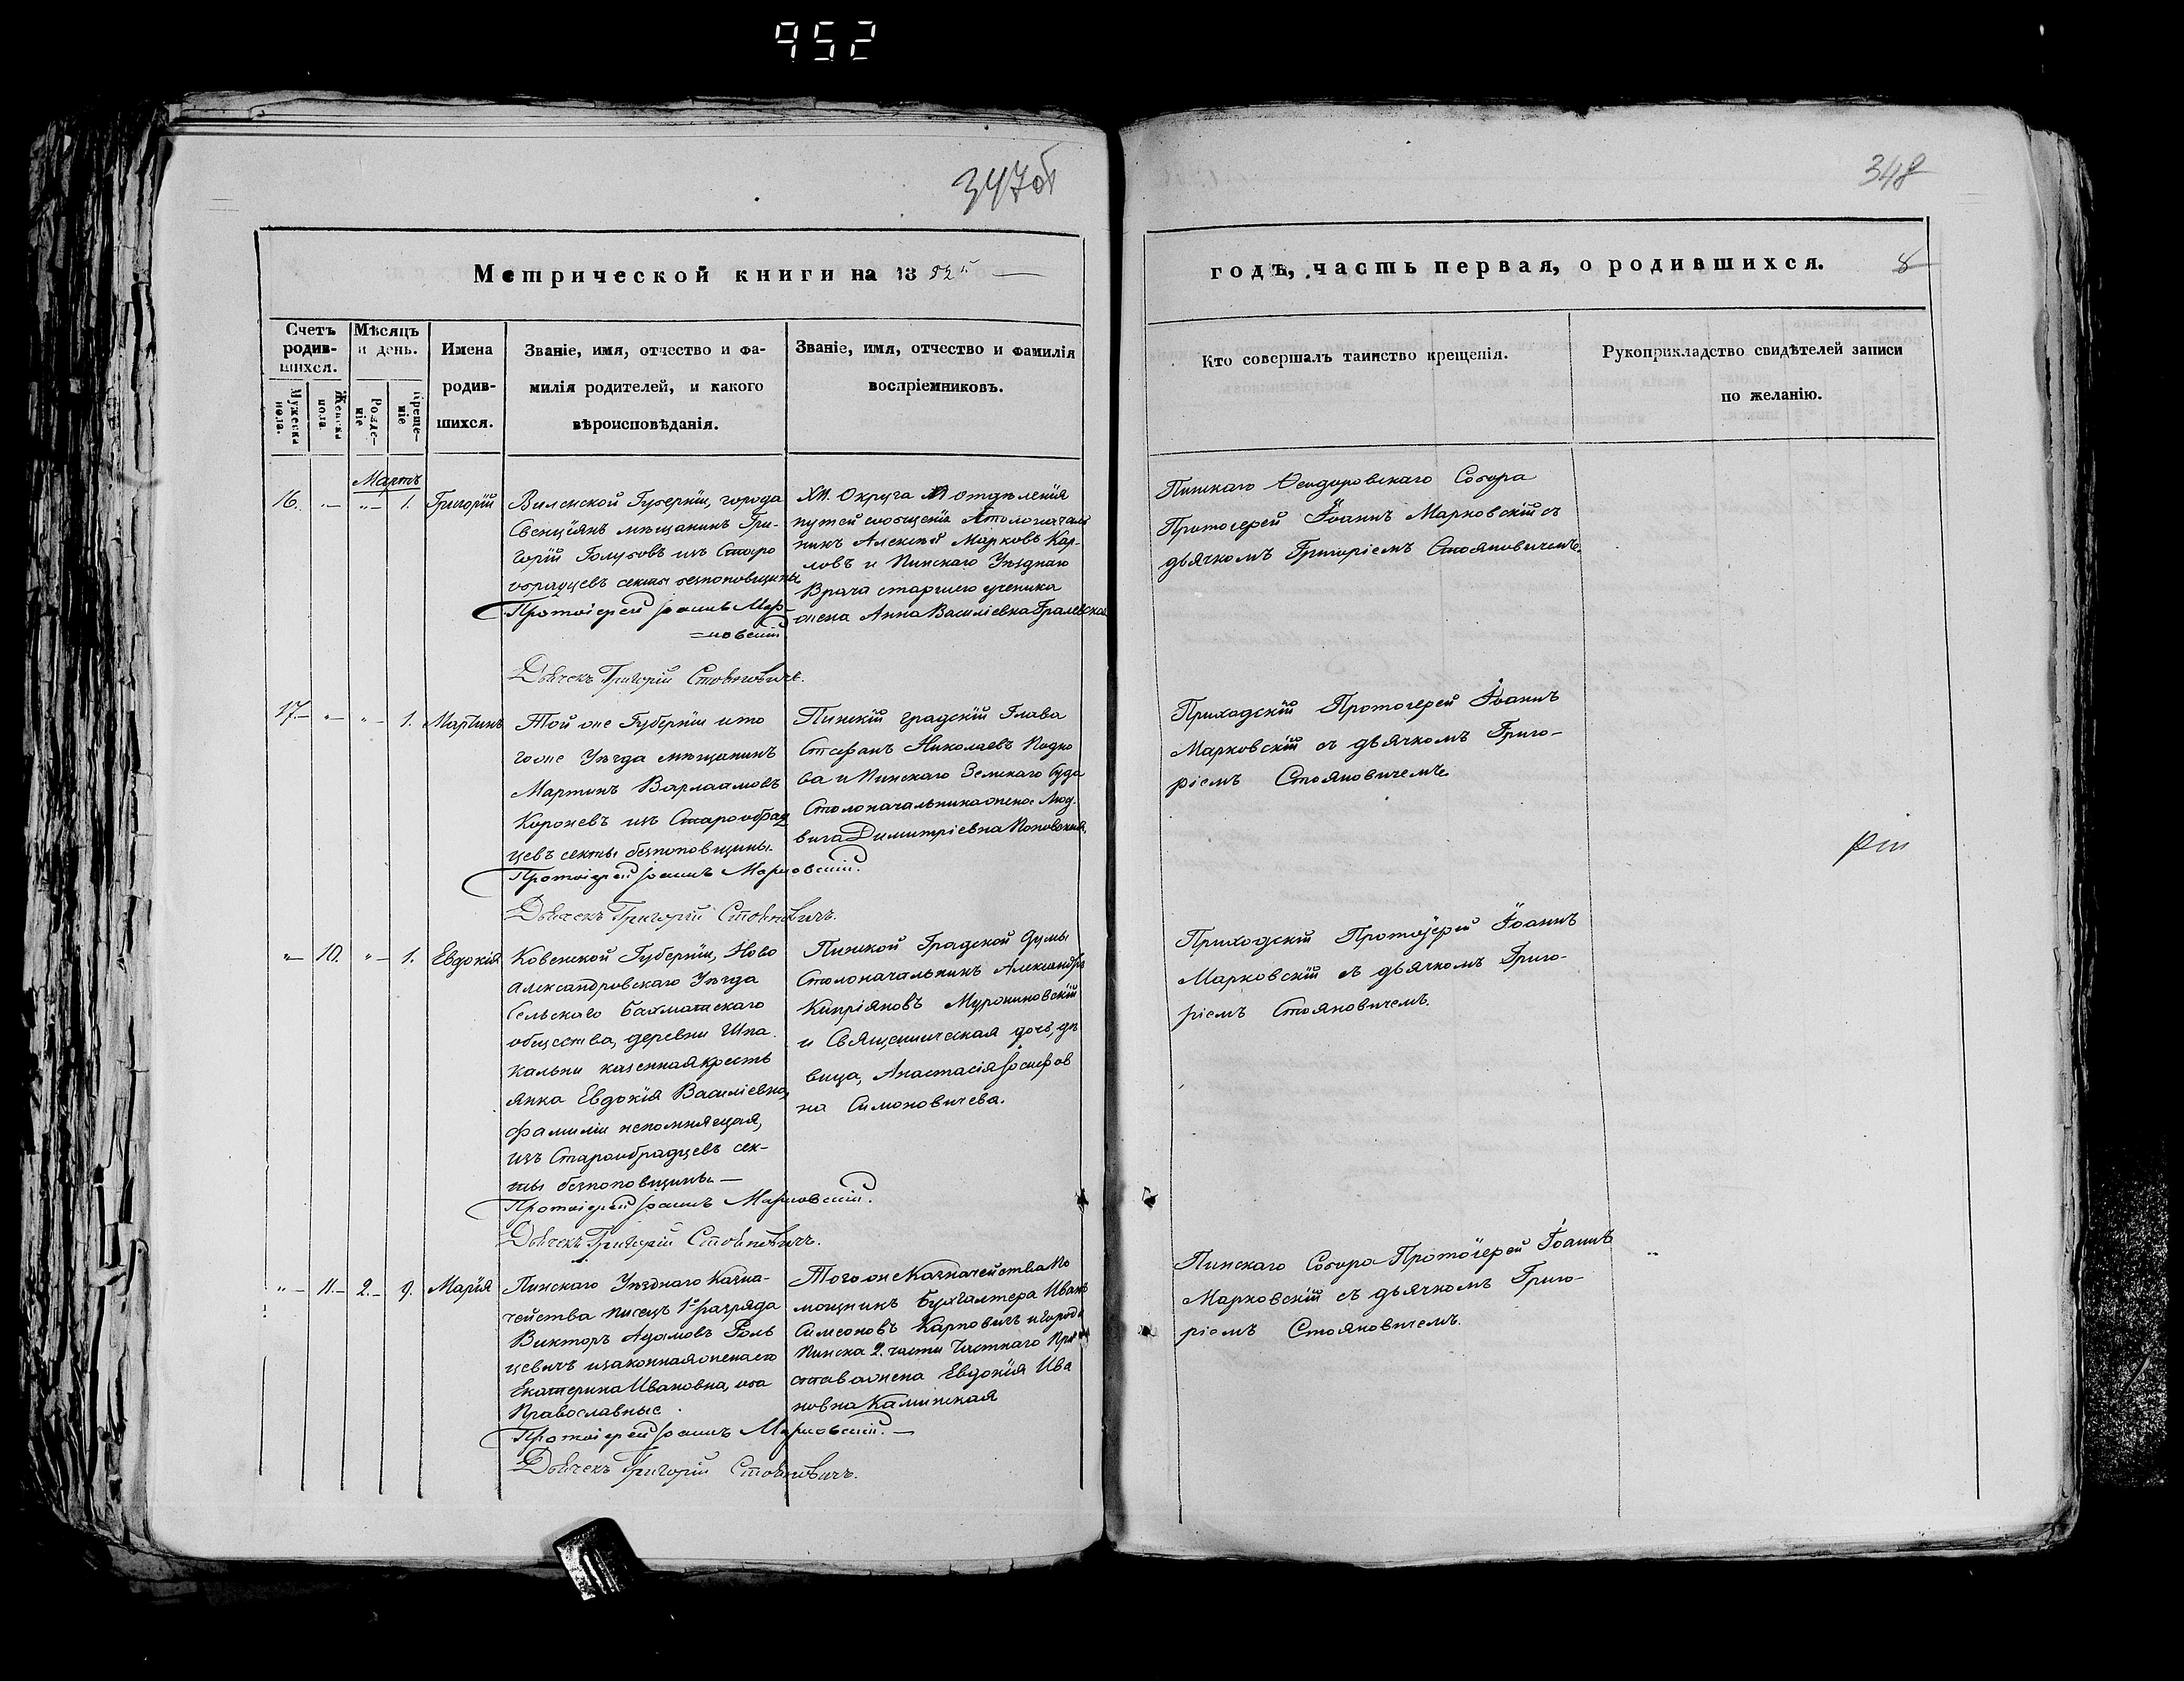 952
347об
348
Метрической книги на 1852й
годъ, часть первая, о родившихся.
8
Счетъ родив-
шихся.
Мужеска пола.
Женска пола.
Мѣсяцъ и день.
Рожде-
ніе
Креще-
ніе
Имена
родив-
шихся.
Званіе, имя, отчество и фа-
милія родителей, и какого
вѣроисповѣданія.
Званіе, имя, отчество и фамилія
воспріемниковъ.
Кто совершалъ таинство крещенія.
Рукоприкладство свидѣтелей записи
по желанію.
Мартъ
16. „— „— 1. Григорій
Виленской Губерніи, города
Свенціянъ мѣщанинъ Гри-
горій Голубовъ изъ Старо
обрядцевъ секты безпоповщины
Протоіерей Іоаннъ Мар-
=ковскій
Дьячекъ Григорій Стояновичъ.
XII. Округа отдѣленія
путей сообщенія Столоначаль
никъ Алексѣй Марковъ Кар-
ловъ и Пинскаго Уѣзднаго
Врача старшего ученика
жена Анна Василіевна
Пинскаго Ѳеодоровскаго Собора
Протоіерей Іоаннъ Марковскій съ
дьячкомъ Григоріемъ Стояновичемъ.
17.— „— „— 1. Мартинъ
Той же Губерніи и то
гоже Уѣзда мѣщанинъ
Мартинъ Варлаамовъ
изъ Старообряд
цевъ секты безпоповщины.
Протоіерей Іоаннъ Марковскій.
Дьячекъ Григорій Стояновичъ.
Пинскій градскій Глава
Стефанъ Николаевъ
ва и Пинскаго Земскаго Суда
Столоначальника жена Люд-
вига Димитріевна
Приходскій Протоіерей Іоаннъ
Марковскій съ дьячкомъ Григо-
ріемъ Стояновичемъ
„— 10. „— 1. Евдокія
Ковенской Губерніи, Ново
александровскаго Уѣзда
Сельскаго Бахматскаго
общества, деревни Шпа-
кальни казенная кресть
янка Евдокія Василіевна,
фамиліи непомнящая,
изъ Старообрядцевъ сек-
ты безпоповщины.—
Протоіерей Іоаннъ Марковскій.
Дьячекъ Григорій Стояновичъ.
Пинской Градской Думы
Столоначальникъ Александръ
Кипріяновъ
и Священническая дочь, дѣ
вица, Анастасія Іосифов
на Симоновичева.
Приходскій Протоіерей Іоаннъ
Марковскій съ дьячкомъ Григо-
ріемъ Стояновичемъ.
„— 11.— 2.— 9. Марія
Пинскаго Уѣзднаго Казна-
чейства писецъ 1го разряда
Викторъ Адамовъ
цевичъ и законная жена его
Екатерина Ивановна, оба
Православные.
Протоіерей Іоаннъ Марковскій.—
Дьячекъ Григорій Стояновичъ.
Того же Казначейства По
мощникъ Бухгалтера Иванъ
Симеоновъ Карповичъ и города
Пинска 2. части Частнаго При
става жена Евдокія Ива
новна Калинская
Пинскаго Собора Протоіерей Іоаннъ
Марковскій съ дьячкомъ Григо-
ріемъ Стояновичемъ.